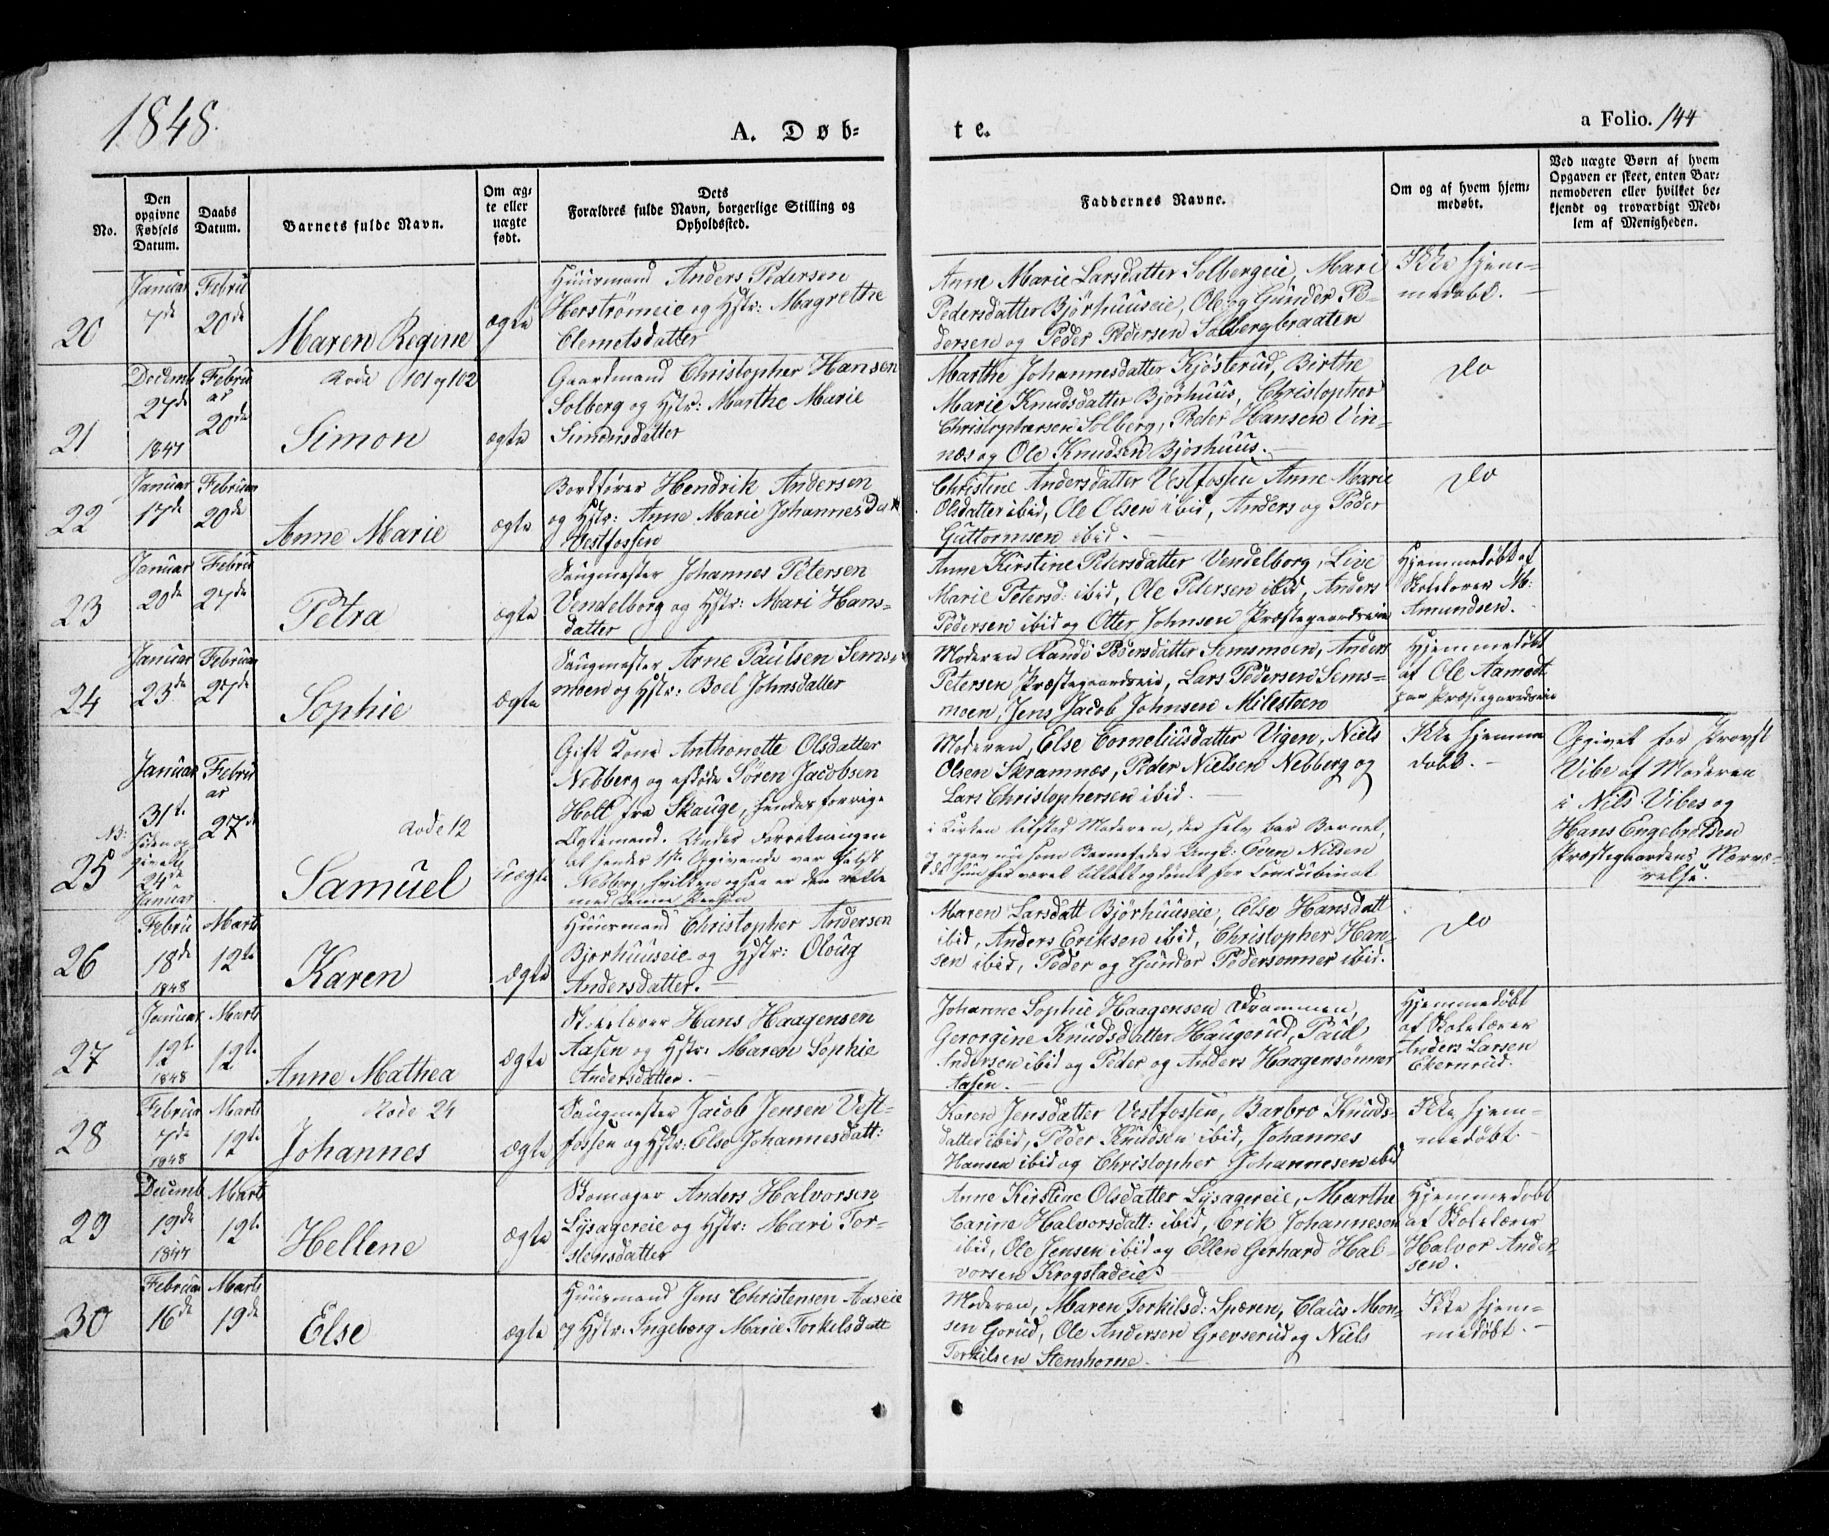 1848.
A. Døb-
te.
a Folio. 144
No.
Den opgivne Fødsels Datum.
Daabs Datum.
Barnets fulde Navn.
Om ægte eller uægte født.
Dets
Forældres fulde Navn, borgerlige Stilling og
Opholdssted.
Faddernes Navne.
Om og af hvem hjem-
medøbt.
Ved uægte Børn af hvem
Opgaven er skeet, enten Bar-
nemoderen eller hvilket be-
kjendt og troværdigt Med-
lem af Menigheden.
20
Januar
7de
Febru
20de
Maren Regine
ægte
Huusmand Anders Pedersen
Herstrømeie og Hstr: Magrethe
Clemetsdatter
Anne Marie Larsdatter Solbergeie, Mari
Pedersdatter Bjørhuuseie, Ole og Gunder Pe-
dersen og Peder Pedersen Solbergbraaten
Ikke hjem-
medøbt.
21
Decemb
27de
1847
Febru
ar
20de
Rode (101 og 102
Simon
ægte
Gaardmand Christopher Hansen
Solberg og Hstr: Marthe Marie
Simonsdatter
Marthe Johannesdatter Kjøsterud, Birthe
Marie Knudsdatter Bjørhuus, Christopher
Christophersen Solberg, Peder Hansen Vin-
næs og Ole Knudsen Bjørhuus.
Do
22
Januar
17de
Februar
20de
Anne Marie
ægte
Bordfører Hendrik Andersen
og Hstr: Anne Marie Johannesdatt
Vestfossen
Christine Andersdatter Vestfossen Anne Marie
Olsdatter ibid, Ole Olsen ibid, Anders og Peder
Guttormsen ibid.
Do
23
Januar
20de
Febru
27de
Petra
ægte
Saugmester Johannes Petersen
Vendelborg og Hstr: Mari Hans-
datter
Anne Kirstine Petersdatter Vendelborg, Live
Marie Petersd: ibid, Ole Petersen ibid, Anders
Pedersen ibid og Otter Johnsen Præstegaardseie
Hjemmedøbt af
Skolelærer M:
Amundsen.
24
Januar
23de
Februar
27de
Sophie
ægte
Saugmester Arne Paulsen Sems-
moen og Hstr: Boel Johnsdatter
Moderen Randi Pedersdatter Semsmoen, Anders
Petersen Præstegaardseie, Lars Pedersen Sems-
moen, Jens Jacob Johnsen Milesteen
Hjemmedøbt
af Ole Aamodt
paa Præstegaardseie
25
Januar
31te
NB:
siden op
givet
24de
Januar
Febru
ar
27de
Rode 12
Samuel
uægte
Gift Kone Anthonette Olsdatter
Nedberg og afdøde Søren Jacobsen
Holt fra Skauge, hendes forrige
Ægtemand. Under Forretningen
at hendes 1ste Opgivende var falsk
Nedberg, hvilken ogsaa er den rette
med denne Person
Moderen, Else Corneliusdatter Vigen, Niels
Olsen Skramnæs, Peder Nielsen Nedberg og
Lars Christophersen ibid.
i Kirken tilstod Moderen, der selv bar Barnet,
og opgav nu som Barnefader Ungk: Even Nilsen
Hun har været tiltalt og dømt for Concubinat
Ikke hjemme
døbt.
Opgivet for Provst
Vibe af Moderen
i Nils Vibes og
Hans Engebretsen
Præstegaardens Nærvæ-
relse.
26
Febru
18de
1848
Marts
12te
Karen
ægte
Huusmand Christopher Andersen
Bjørhuuseie og Hstr: Oloug
Andersdatter.
Maren Larsdatt Bjørhuuseie, Else Hansdatt
ibid, Anders Eriksen ibid, Christopher Han-
sen ibid, Peder og Gunder Pedersønner ibid.
Do
27
Januar
12te
1848
Marts
12te
Anne Mathea
ægte
Skolelærer Hans Haagensen
Aasen og Hstr: Maren Sophie
Andersdatter.
Johanne Sophie Haagensen Drammen,
Gerorgine Knudsdatter Haugerud, Paul
Andersen ibid og Peder og Anders Haagensønner
Aasen.
Hjemmedøbt
af Skolelærer
Anders Larsen
Ekernrud.
28
Februar
7de
1848
Marts
12te
Rode 24
Johannes
ægte
Saugmester Jacob Jensen Vest-
fossen og Hstr: Else Johannesdatt:
Karen Jensdatter Vestfossen, Barbro Knuds-
datter ibid, Peder Knudsen ibid, Johannes
Hansen ibid og Christopher Johannesen ibid
Ikke hjem-
medøbt
29
Decemb
19de
1847
Marts
12te
Hellene
ægte
Skomager Anders Halvorsen
Lysagereie og Hstr: Mari Tor-
stensdatter
Anne Kirstine Olsdatter Lysagereie, Marthe
Carine Halvorsdatt: ibid, Erik Johannesen
ibid, Ole Jensen ibid og Ellen Gerhard Hal-
vorsen Krogstadeie
Hjemmedøbt
af Skolelærer
Halvor Ander
sen.
30
Februar
16de
Marts
19de
Else
ægte
Huusmand Jens Christensen Aaseie
og Hstr: Ingeborg Marie Torkelsdatt
Moderen, Maren Torkilsd: Spæren, Claus Mon-
sen Gorud, Ole Andersen Grevserud og Niels
Torkilsen Stenshorne.
Ikke hjem-
medøbt.